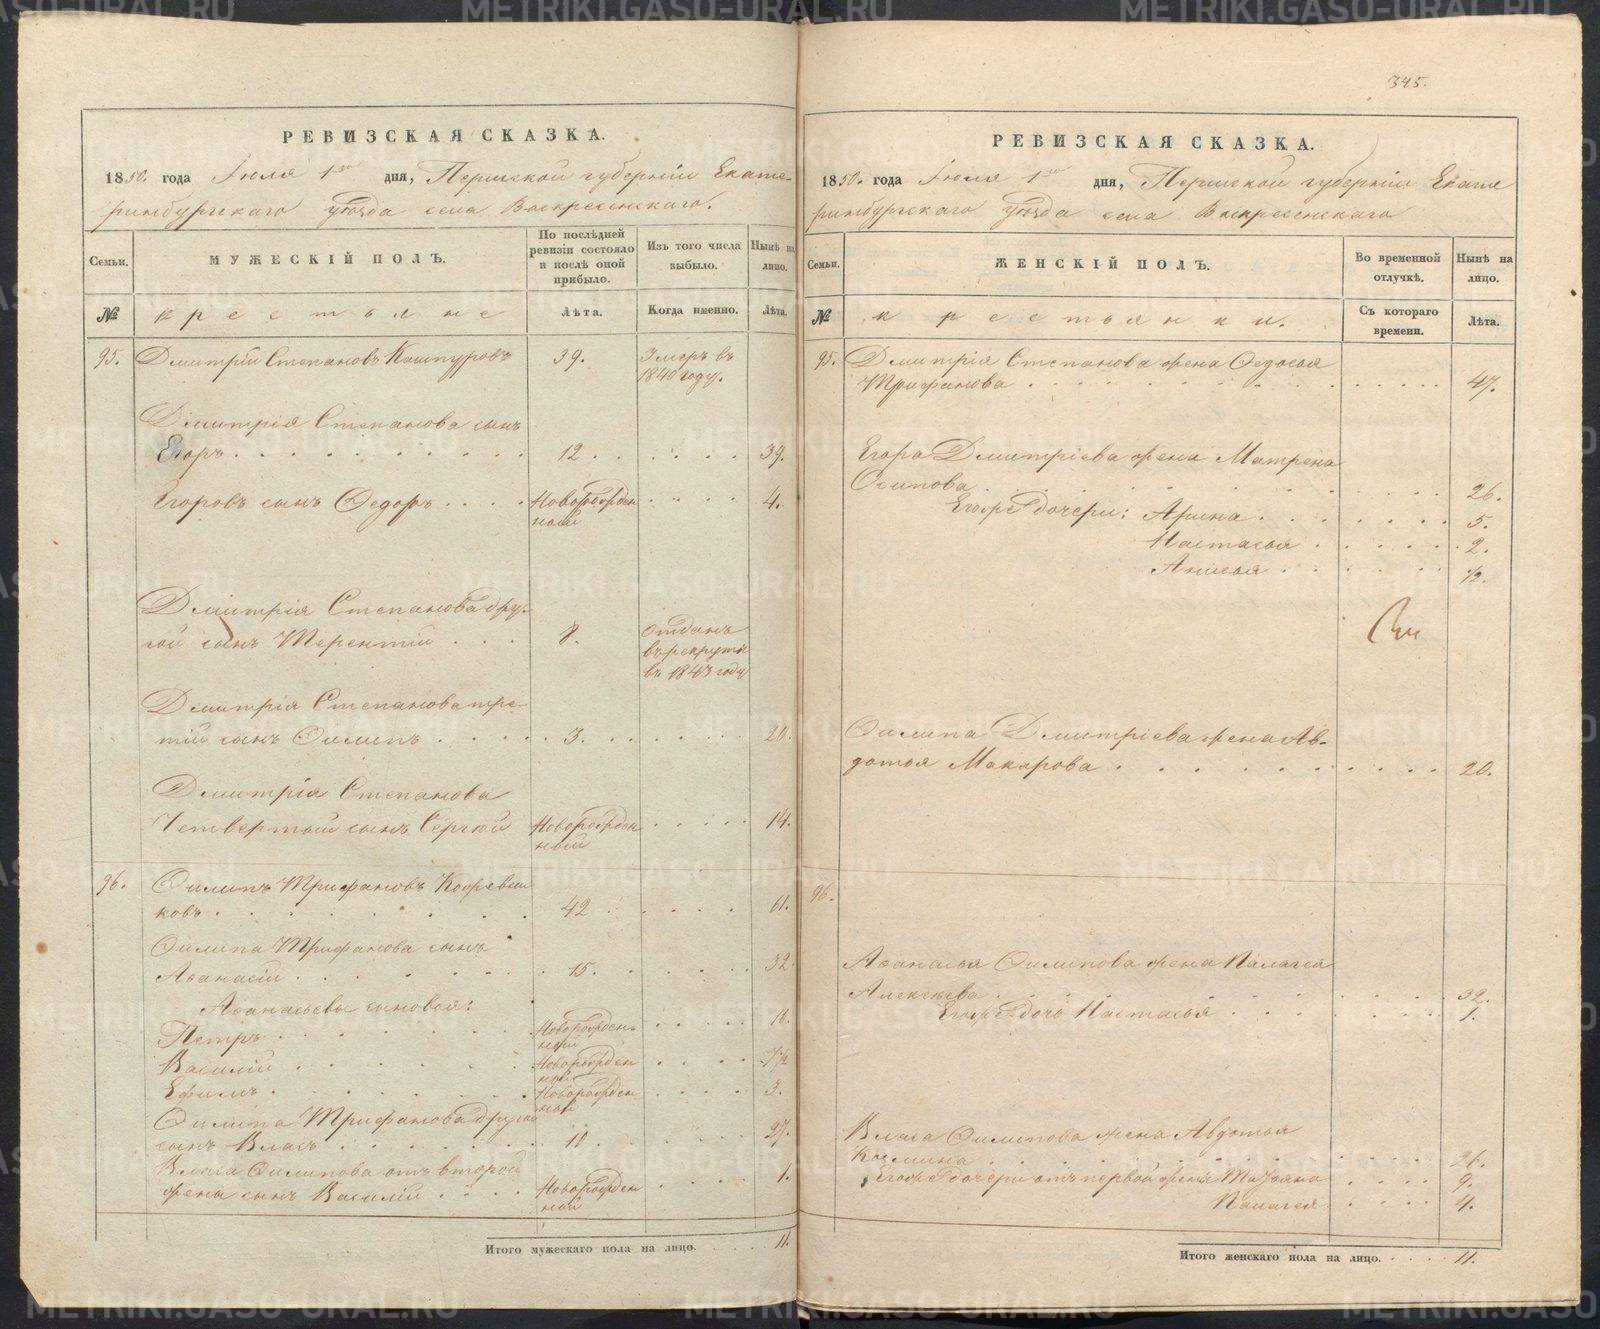 РЕВИЗСКАЯ СКАЗКА.
1850. года Июля 1го дня, Пермской губерніи Екате-
ринбургскаго уѣзда села Воскресенскаго.
Семьи.
МУЖЕСКІЙ ПОЛЪ.
По послѣдней ревизіи состояло и послѣ оной прибыло.
Изъ того числа выбыло.
Нынѣ на лицо.
№
крестьяне
Лѣта.
Когда именно.
Лѣта.
95. Дмитрій Степановъ Кашпуровъ 39. Умеръ въ
1840 году.
Дмитрія Степанова сынъ
Егоръ 12 39.
Егоровъ сынъ Федоръ Новорожден 4.
ный
Дмитрія Степанова дру-
гой сынъ Терентій 8. Отданъ
въ рекруты
въ 1843 году
Дмитрія Степанова тре-
тій сынъ Филипъ 3. 20.
Дмитрія Степанова
Четвертый сынъ Сергѣй Новорожден 14.
ный
96. Филипъ Трифановъ
ковъ 42 61.
Филипа Трифанова сынъ
Афанасій 15. 32
Афанасьевы сыновья:
Петръ Новорожден 11.
ный
Василій Новорожден
ный
Ефимъ Новорожден 3.
ный
Филипа Трифанова другой
сынъ Власъ 10 27.
Власа Филипова отъ второй
жены сынъ Василій Новорожден 1.
ный
Итого мужескаго пола на лицо. 11.
345.
РЕВИЗСКАЯ СКАЗКА.
1850. года Июля 1го дня, Пермской губерніи Екате
ринбургскаго уѣзда села Воскресенскаго
Семьи.
ЖЕНСКІЙ ПОЛЪ.
Во временной отлучкѣ.
Нынѣ на лицо.
№
крестьянки.
Съ котораго времени.
Лѣта.
95. Дмитрія Степанова жена Федосья
Трифанова 47.
Егора Дмитріева жена Матрена
Осипова 26.
Егожъ дочери: Арина 5.
Настасья 2.
Анисья 1/2.
Филипа Дмитріева жена Ав-
дотья Макарова 20.
96.
Афанасья Филипова жена Палагея
Алексѣева 32.
Егожъ дочь Настасья 1.
Власа Филипова жена Авдотья
Космина 26.
Егожъ дочери отъ первой жены Татьяна 9.
Палагея 4.
Итого женскаго пола на лицо. 11.
METRIKI.GASO-URAL.RU